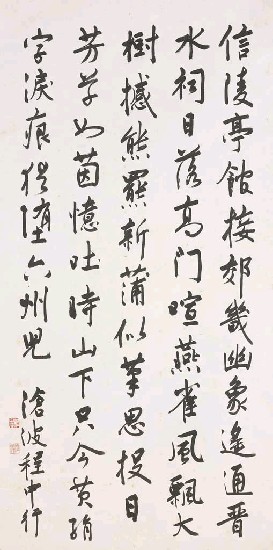 信陵亭館接郊畿幽象遙通晉
水祠日落高門喧燕雀風飄大
樹撼熊羆新蒲似筆思投日
芳草如茵憶吐時山下只今黃絹
字淚痕猶墮六州兒 滄波程中行